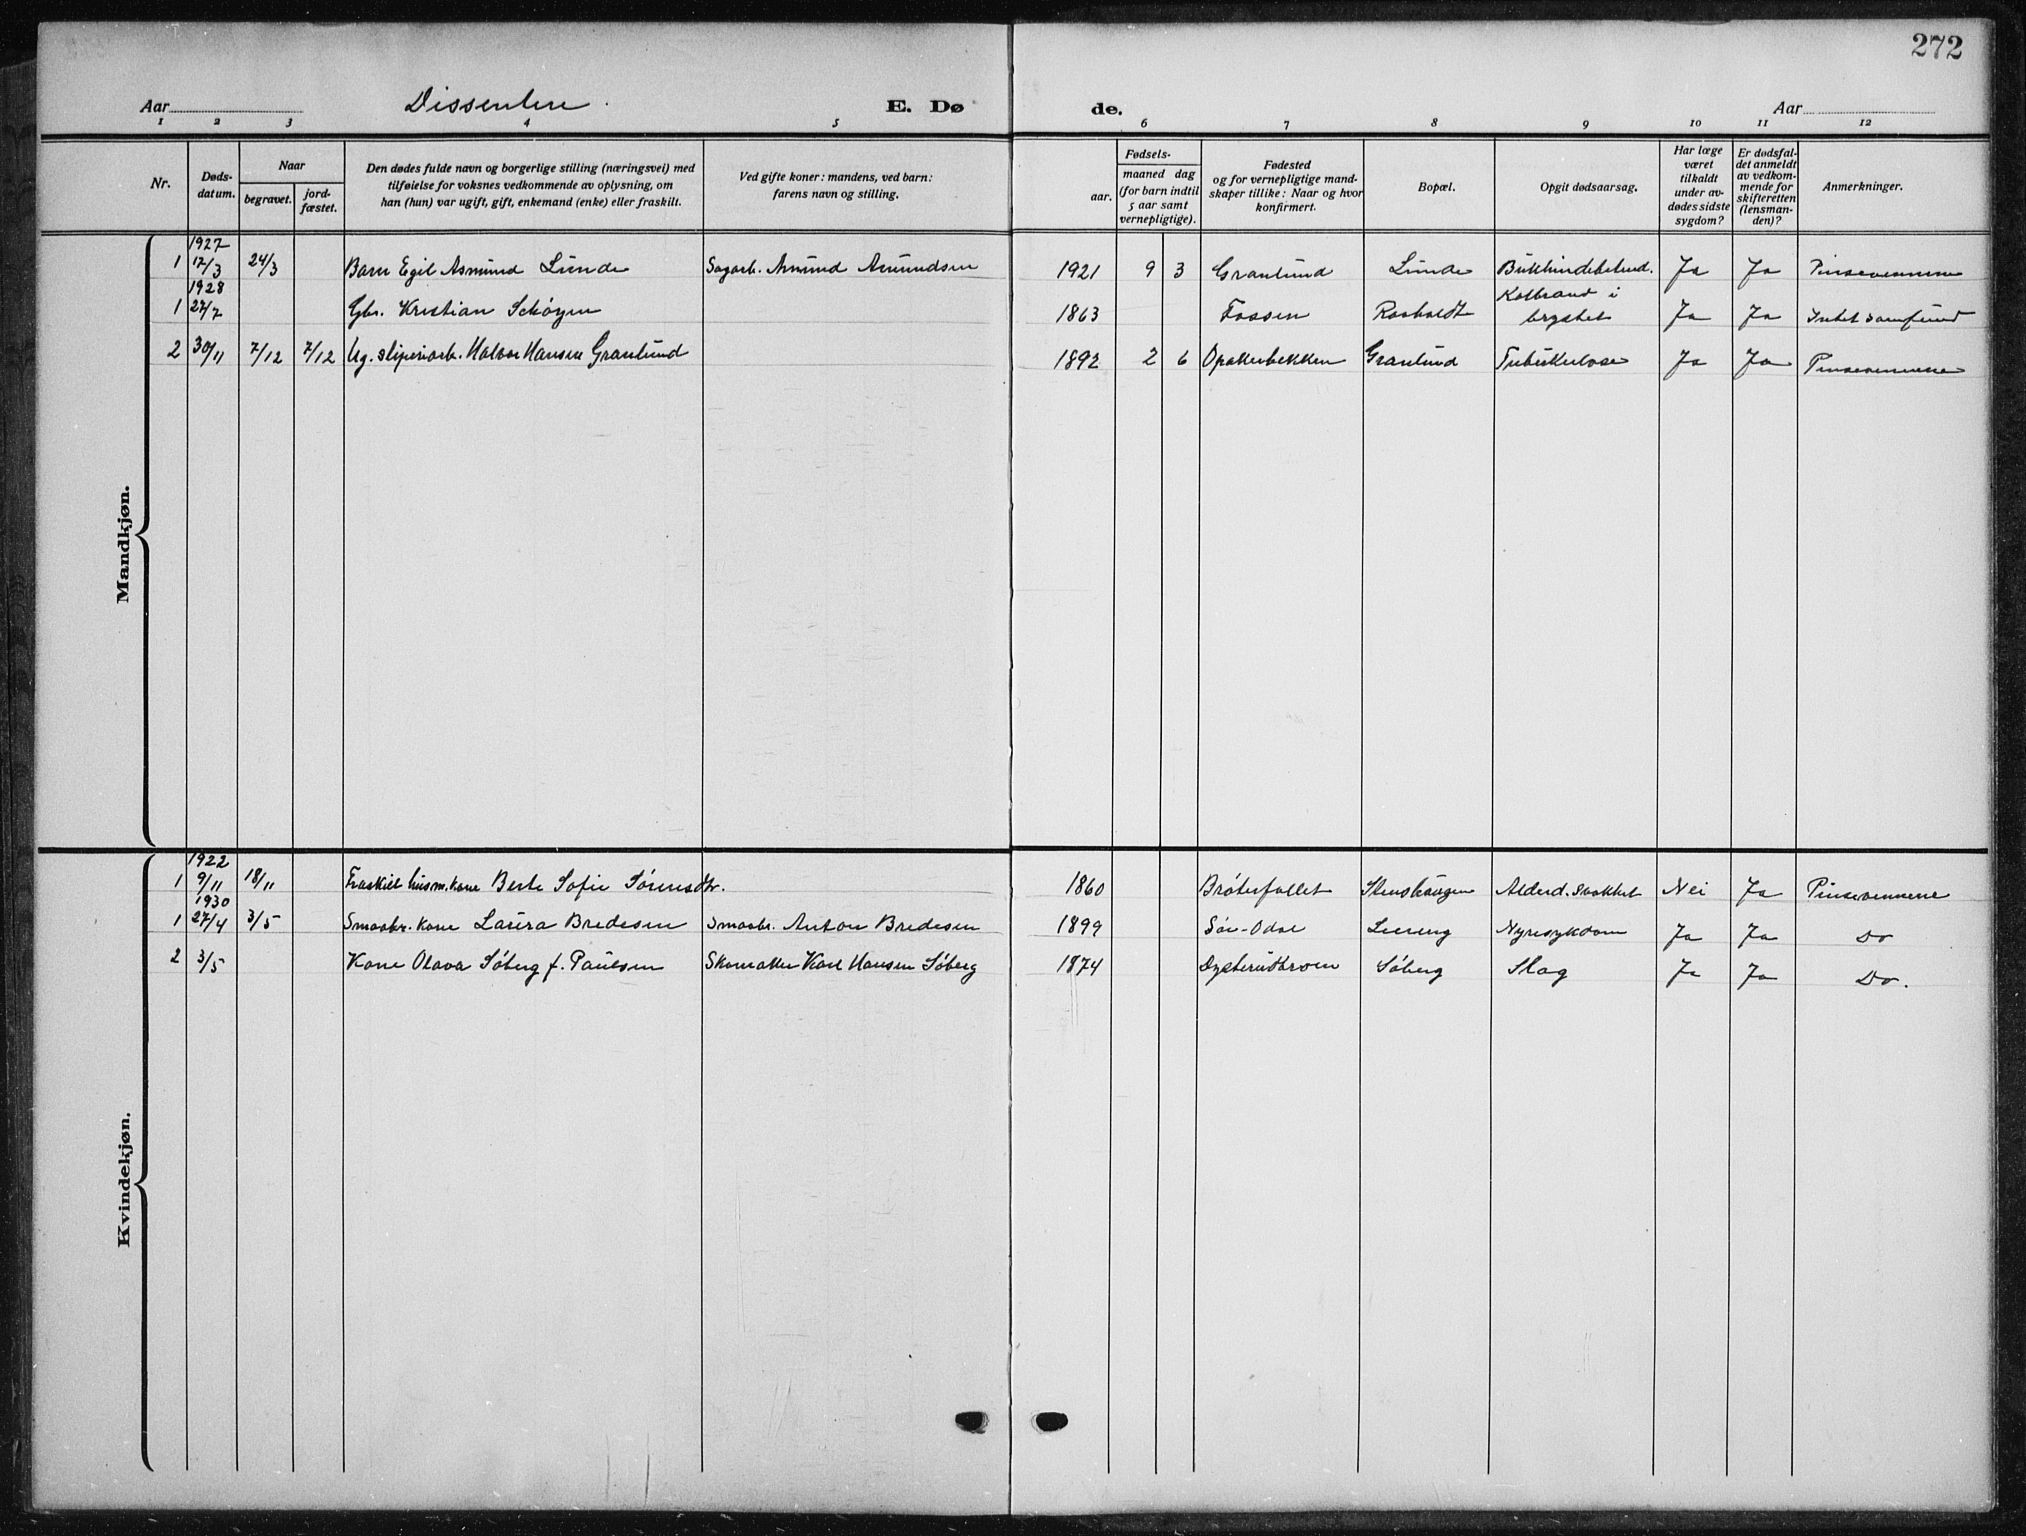 272
Aar Dissentere E. Dø de. Aar
1 2 3 4 5 6 7 8 9 10 11 12
Nr.
Døds-
datum.
Naar
begravet.
jord-
fæstet.
Den dødes fulde navn og borgerlige stilling (næringsvei) med
tilføielse for voksnes vedkommende av oplysning, om
han (hun) var ugift, gift, enkemand (enke) eller fraskilt.
Ved gifte koner: mandens, ved barn:
farens navn og stilling.
Fødsels-
aar.
maaned dag
(for barn indtil
5 aar samt
vernepligtige).
Fødested
og for vernepligtige mand-
skaper tillike: Naar og hvor
konfirmert.
Bopæl.
Opgit dødsaarsag.
Har læge
været
tilkaldt
under av-
dødes sidste
sygdom?
Er dødsfal-
det anmeldt
av vedkom-
mende for
skifteretten
(lensman-
den)?
Anmerkninger.
Mandkjøn.
1927
1 17/3 24/3 Barn Egil Asmund Lunde Sagarb. Amund Amundsen 1921 9 3 Granlund Lunde Ja Ja Pinsevennene
1928
1 27/7 Gbr. Kristian Schøyen 1863 Fossen Raaholdt Koldbrand i
brystet Ja Ja Intet samfund
2 30/11 7/12 7/12 Ug. sliperiarb. Halvor Hansen Granlund 1892 2 6 Opakerbekken Granlund Tuberkulose Ja Ja Pinsevennene
Kvindekjøn.
1922
1 9/11 18/11 Fraskilt husm. kone Berte Sofie Sørensdtr. 1860 Brøterfallet Stenshaugen Alderd. svakhet Nei Ja Pinsevennene
1930
1 27/4 3/5 Smaabr. kone Laura Bredesen Smaabr. Anton Bredesen 1899 Sør-Odal Nyresykdom Ja Ja Do
2 3/5 Kone Olava Søberg f. Paulsen Skomaker Karl Hansen Søberg 1874 Dysterudbroen Søberg Slag Ja Ja Do.